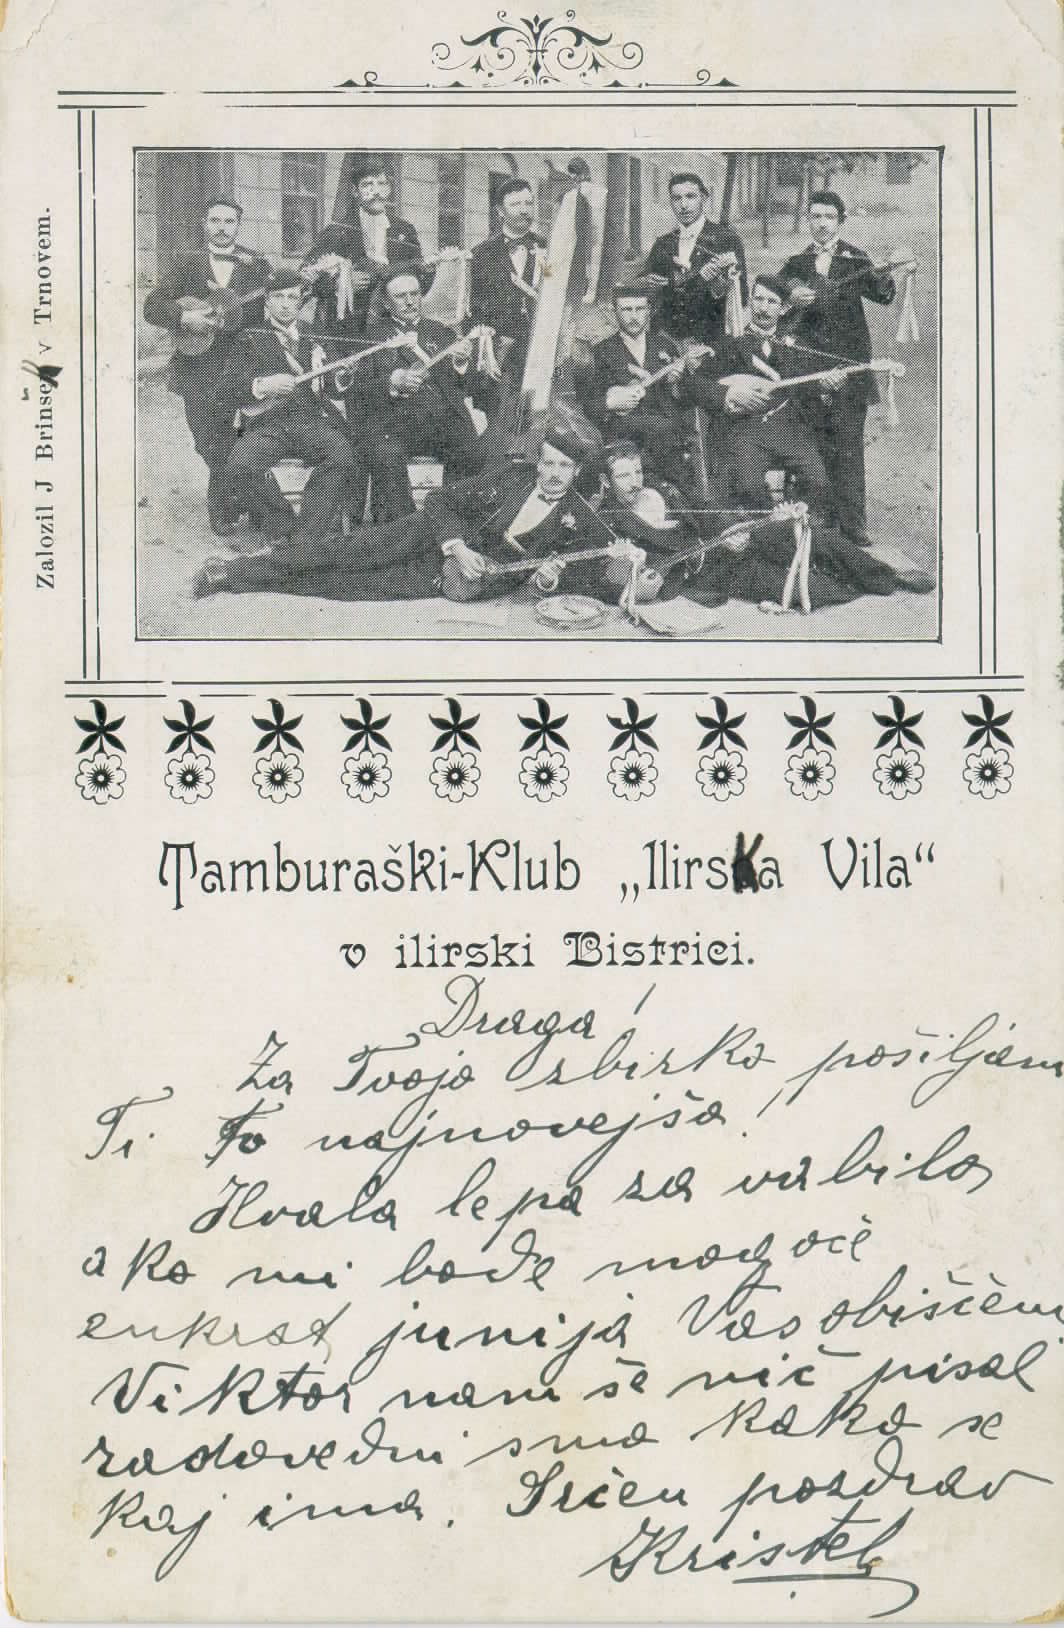 Založil J Brinšek v Trnovem.
Tamburaški-Klub „Ilirska Vila“
v ilirski Bistrici.
Draga!
Za Tvojo zbirko pošiljam
Ti to najnovejšo!
Hvala lepa za vabilo
ako mi bode mogoče
enkrat junija Vas obiščem
Viktor nam še nič pisal
radovedni smo kako se
kaj ima. Srčen pozdrav
Kristel